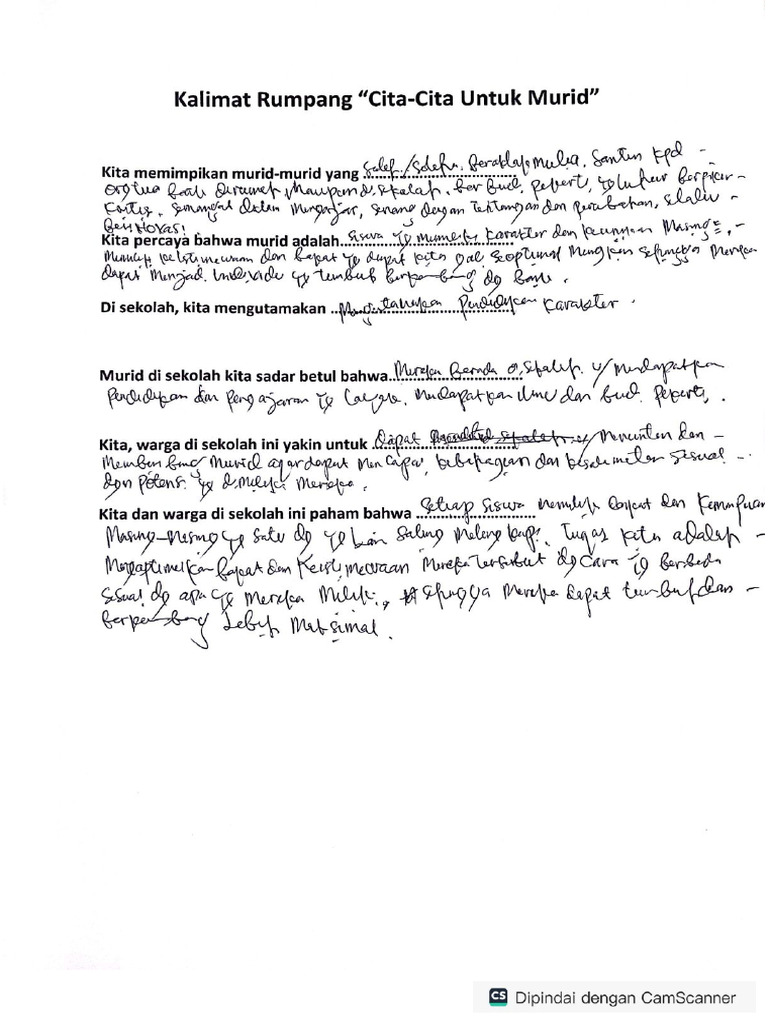 Kalimat Rumpang “Cita-Cita Untuk Murid”
Kita memimpikan murid-murid yang Saleh/Soleha, Berakhlak Mulia, Santun kpd –
orgtua baik dirumah, Maupun di sekolah, ber budi pekerti, yg luhur Berpikir –
Kritis, Semangat dalam Mengajar, senang dengan Tantangan dan perubahan, selalu –
BerINOVASI
Kita percaya bahwa murid adalah Siswa yg Memiliki Karakter dan keunikan Masing=, –
Memiliki keistimewaan dan Bakat yg dapat kita gali Seoptimal Mungkin sehingga Mereka
dapat Menjadi Individu yg tumbuh berkembang dg baik.
Di sekolah, kita mengutamakan Mengutamakan Pendidikan Karakter.
Murid di sekolah kita sadar betul bahwa Mereka Berada di Sekolah u/ Mendapatkan
Pendidikan dan pengajaran yg Layak. Mendapatkan ilmu dan budi Pekerti.
Kita, warga di sekolah ini yakin untuk dapat Menuntun dan –
Membimbing Murid agar dapat Mencapai kebahagiaan dan keselamatan sesuai –
dgn potensi yg dimiliki Mereka.
Kita dan warga di sekolah ini paham bahwa Setiap Siswa memiliki bakat dan Kemampuan
Masing-Masing yg satu dg yg Lain Saling Melengkapi. Tugas kita adalah –
Mengoptimalkan Bakat dan Keistimewaan Mereka Tersebut dg Cara yg Berbeda
Sesuai dg apa yg Mereka Miliki, sehingga Mereka dapat tumbuh dan –
berkembang Lebih Maksimal.
CS Dipindai dengan CamScanner